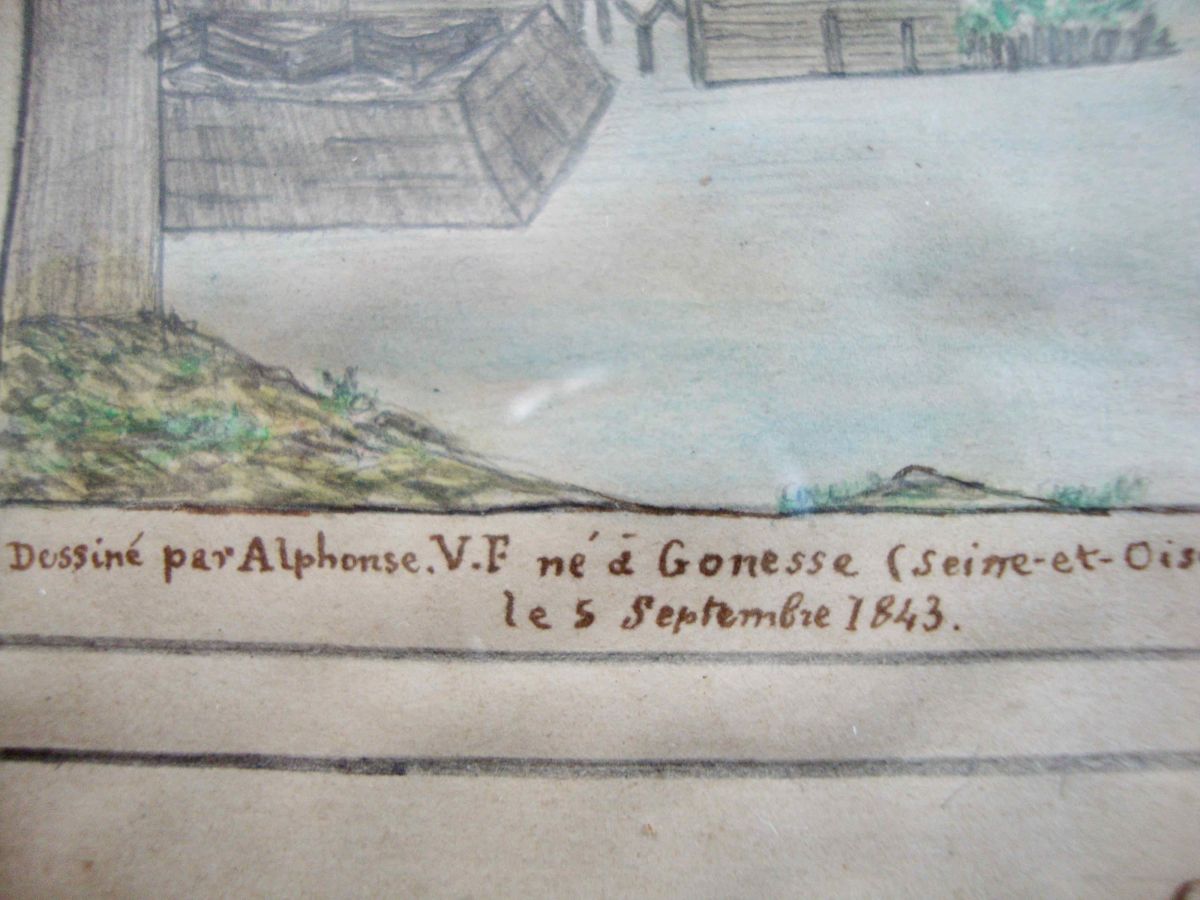 Dessiné par Alphonse. V.F né à Gonesse (Seine-et-Ois
le 5 Septembre 1843.